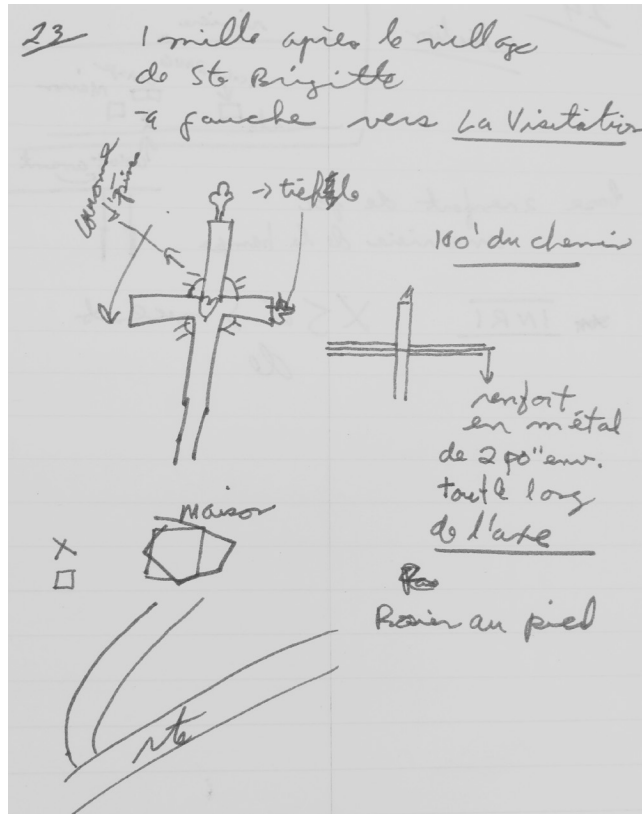 23 1 mille après le village
de Ste Brigitte
à gauche vers La Visitation
couronne
d'épine
→ trèfle
100' du chemin
renfort
en métal
de 2 po" env.
tout le long
de l'axe
maison
X
Rosier au pied
rte